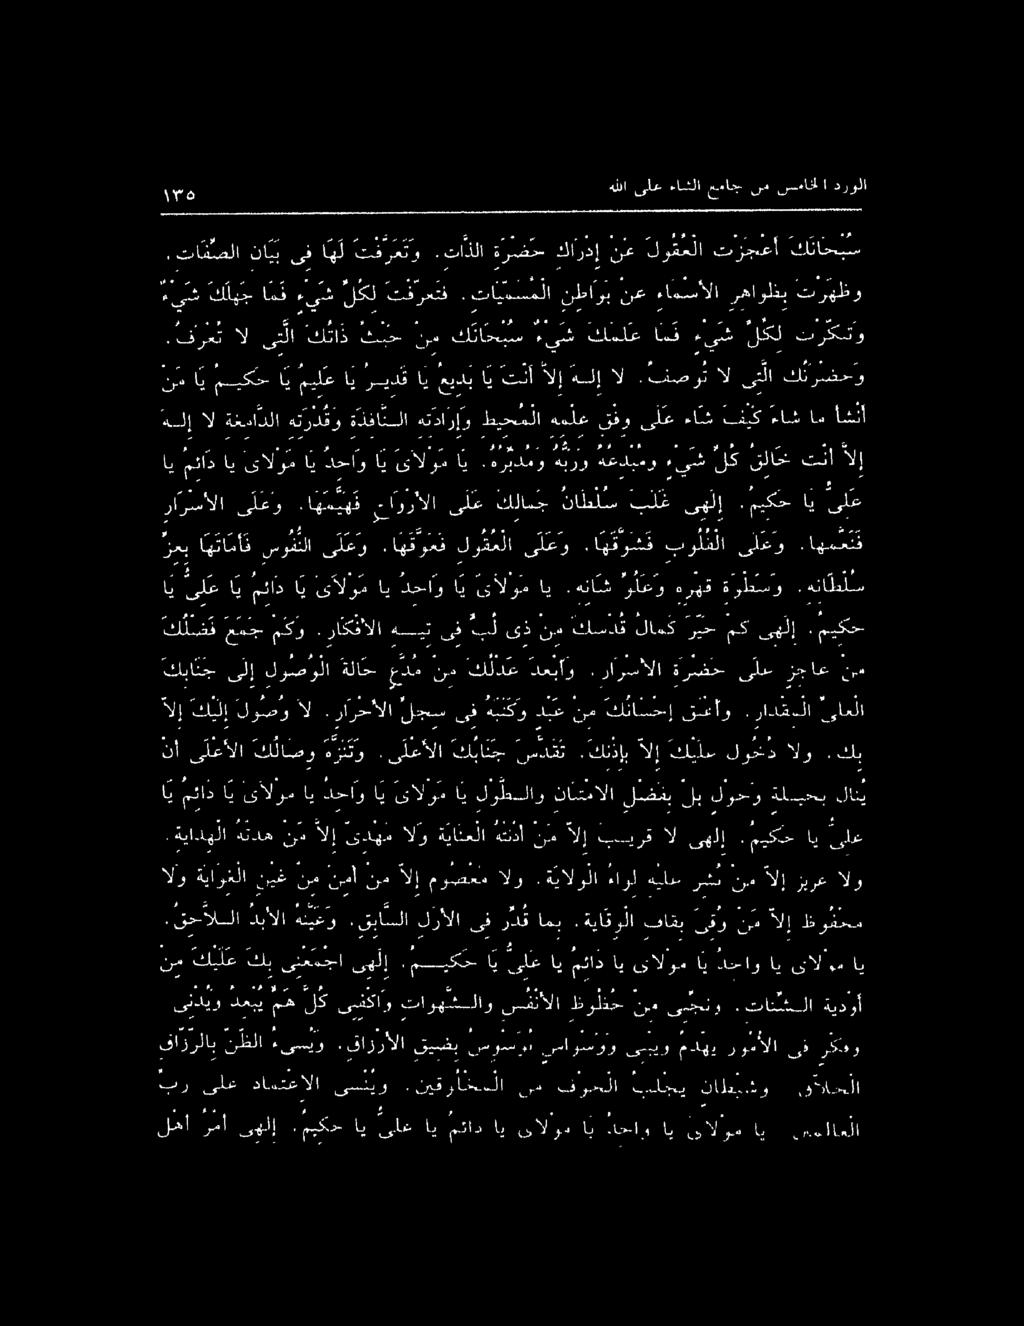 الورد الخامس من جامع الثناء على الله ١٣٥
سُبْحَانَكَ أَعْجَزْتَ الْعُقُولَ عَنْ إِدْرَاكِ حَضْرَةِ الذَّاتِ. وَتَعَرَّفْتَ لَهَا فِى بَيَانِ الصِّفَاتِ.
وَظَهَرْتَ بِظَواهِرِ الأَسْمَاءِ عَنْ بَوَاطِنِ الْمُسَمَّيَاتِ. فَتَعَرَّفْتَ لِكُلِّ شَىْءٍ فَمَا جَهِلَكَ شَىْءٌ
وَتَنَكَّرْتَ لِكُلِّ شَىْءٍ فَمَا عَلِمَكَ شَىْءٌ سُبْحَانَكَ مِنْ حَيْثُ ذَاتُكَ الَّتِى لا تُعْرَفُ.
وَحَضْرَتُكَ الَّتِى لا تُوصَفُ. لا إِلـهَ إِلاَّ أَنْتَ يَا بَدِيعُ يَا قَدِيـرُ يَا عَلِيمُ يَا حَكِيـمُ يَا مَنْ
أَنْشَأَ مَا شَاءَ كَيْفَ شَاءَ عَلَى وِفْقِ عِلْمِهِ الْمُحِيطِ وَإِرَادَتِهِ الـنَّافِذَةِ وَقُدْرَتِهِ الدَّامِغَةِ لا إِلـهَ
إِلاَّ أَنْتَ خَالِقُ كُلِّ شَىْءٍ وَمُبْدِعُهُ وَرَبُّهُ وَمُدَبِّرُهُ. يَا مَوْلاَىَ يَا وَاحِدُ يَا مَوْلاَىَ يَا دَائِمُ يَا
عَلِىُّ يَا حَكِيمُ. إِلَهِى غَلَبَ سُلْطَانُ جَمَالِكَ عَلَى الأَرْوَاحِ فَهَيَّمَهَا. وَعَلَى الأَسْرَارِ
فَنَعَّمَهَا. وَعَلَى الْقُلُوبِ فَشَوَّقَهَا. وَعَلَى الْعُقُولِ فَعَوَّقَهَا. وَعَلَى النُّفُوسِ فَأَمَاتَهَا بِعِزِّ
سُلْطَانِهِ. وَسَطْوَةِ قَهْرِهِ وَعُلُوِّ شَانِهِ. يَا مَوْلاَىَ يَا وَاحِدُ يَا مَوْلاَىَ يَا دَائِمُ يَا عَلِىُّ يَا
حَكِيمُ. إِلَهِى كَمْ حَيَّرَ كَمَالُ قُدْسِكَ مِنْ ذِى لُبٍّ فِى تِيـهِ الأَفْكَارِ. وَكَمْ جَمَعَ فَضْلُكَ
مِنْ عَاجِزٍ عَلَى حَضْرَةِ الأَسْرَارِ. وَأَبْعَدَ عَدْلُكَ مِنْ مُدَّعٍ حَالَةَ الْوُصُولِ إِلَى جَنَابِكَ
الْعَلِىِّ الْمِقْدَارِ. وَأَعْتَقَ إِحْسَانُكَ مِنْ عَبْدٍ وَكَتَبَهُ فِى سِجِلِّ الأَحْرَارِ. لا وُصُولَ إِلَيْكَ إِلاَّ
بِكَ. وَلا دُخُولَ عَلَيْكَ إِلاَّ بِإِذْنِكَ. تَقَدَّسَ جَنَابُكَ الأَعْلَى. وَتَنَزَّهَ وِصَالُكَ الأَغْلَى أَنْ
يُنَالَ بِحِيـلَةٍ وَحَوْلٍ بَلْ بِفَضْلِ الامْتِنَانِ وَالـطَّوْلِ يَا مَوْلاَىَ يَا وَاحِدُ يَا مَوْلاَىَ يَا دَائِمُ يَا
عَلِىُّ يَا حَكِيمُ. إِلَهِى لا قَرِيـبَ إِلاَّ مَنْ أَدْنَتْهُ الْعِنَايَةُ وَلا مَهْدِىَّ إِلاَّ مَنْ هَدَتْهُ الْهِدَايَةُ.
وَلا عَزِيزَ إِلاَّ مَنْ نُشِرَ عَلَيْهِ لِوَاءُ الْوِلاَيَةِ. وَلا مَعْصُومَ إِلاَّ مَنْ أَمِنَ مِنْ غَيْنِ الْغَوَايَةِ وَلا
مَحْفُوظَ إِلاَّ مَنْ وُقِىَ بِقَافِ الْوِقَايَةِ. بِمَا قُدِّرَ فِى الأَزَلِ السَّابِقِ. وَعَيَّنَهُ الأَبَدُ الـلاَّحِقُ.
يَا مَوْلاَىَ يَا وَاحِدُ يَا مَوْلاَىَ يَا دَائِمُ يَا عَلِىُّ يَا حَكِيـمُ. إِلَهِى اجْمَعْنِى بِكَ عَلَيْكَ مِنْ
أَوْدِيَةِ الـشَّتَاتِ. وَنَجِّنِى مِنْ حُظُوظِ الأَنْفُسِ وَالـشَّهَوَاتِ وَاكْفِنِى كُلَّ هَمٍّ يُبْعِدُ وَيُدْنِى
وَفِكْرٍ فِى الأُمُورِ يَهْدِمُ وَيَبْنِى وَوَسْوَاسٍ يُوَسْوِسُ بِضِيقِ الأَرْزَاقِ. وَيُسِىءُ الظَّنَّ بِالرَّزَّاقِ
الْخَلاَّقِ وَشَيْطَانٍ يَجْلِبُ الْخَوْفَ مِنَ الْمَخْلُوقِينَ. وَيُنْسِى الاعْتِمَادَ عَلَى رَبِّ
الْعَالَمِينَ يَا مَوْلاَىَ يَا وَاحِدُ يَا مَوْلاَىَ يَا دَائِمُ يَا عَلِىُّ يَا حَكِيمُ. إِلَهِى أَمْرُ أَهْلِ